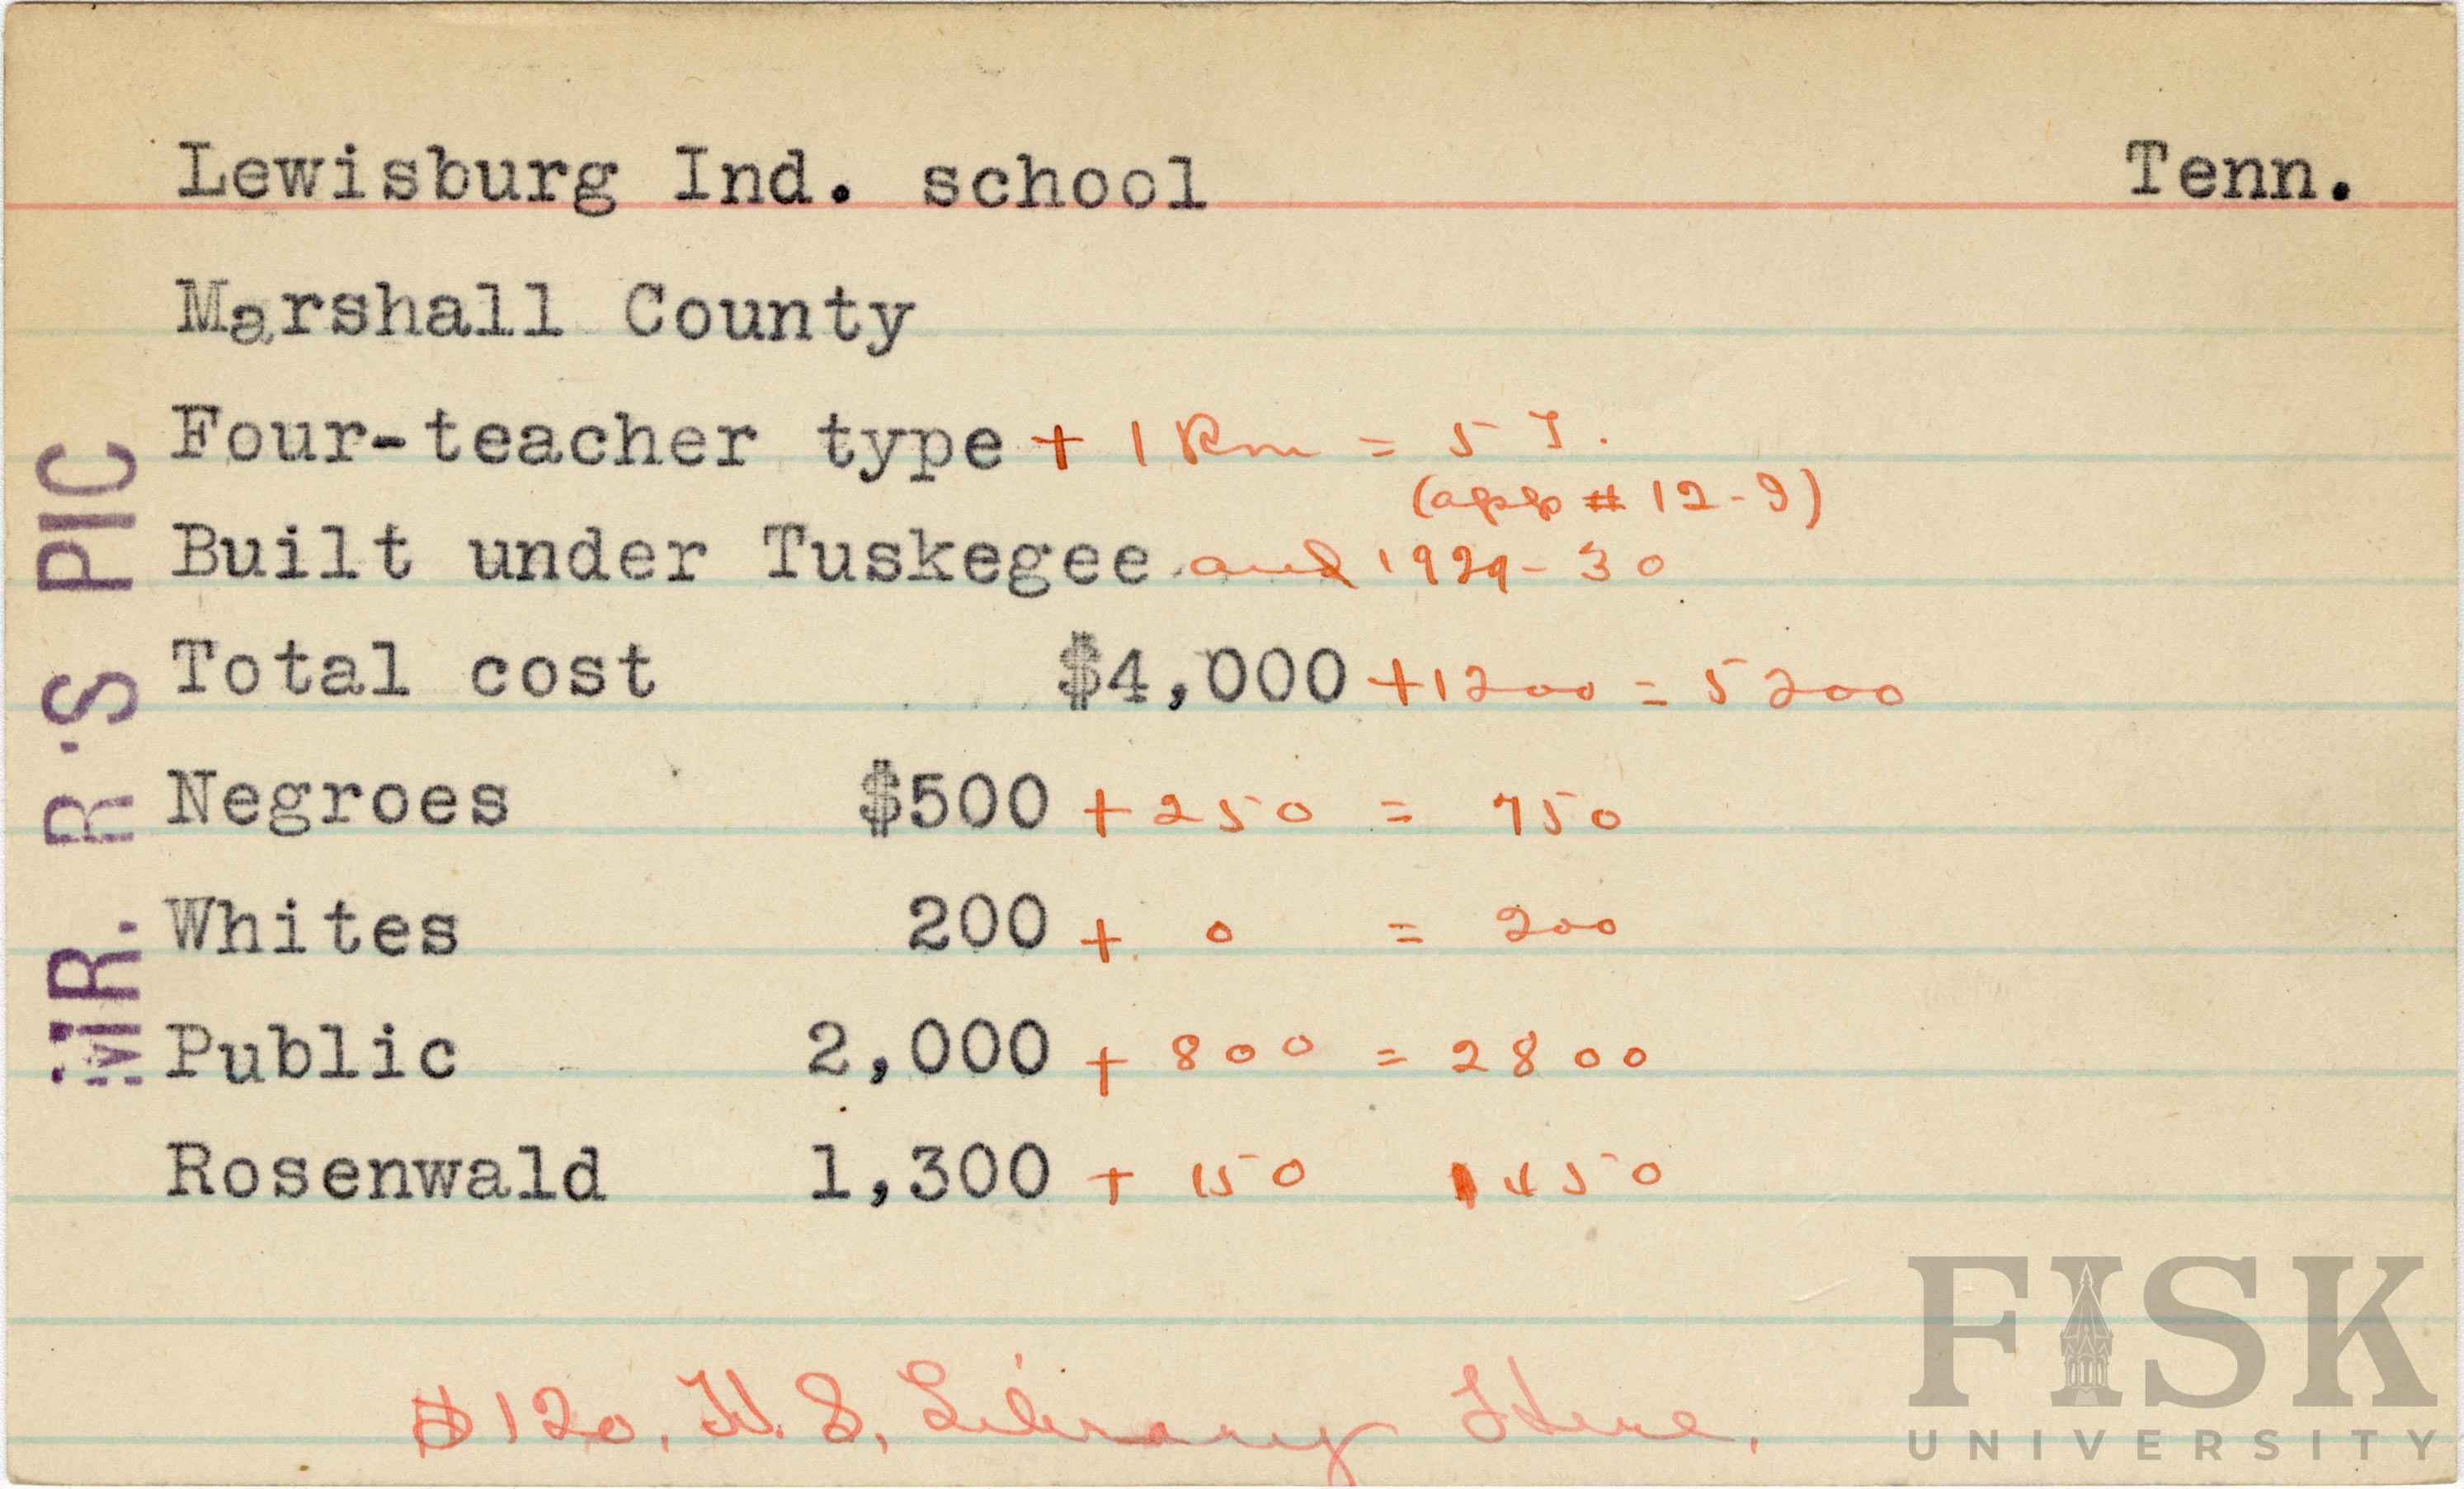 Lewisburg Ind. school Tenn.
Marshall County
Four-teacher type + 1 Rm = 5 T.
(app # 12-9)
Built under Tuskegee and 1929-30
Total cost $4,000 +1200 = 5200
Negroes $500 + 250 = 750
Whites 200 + 0 = 200
Public 2,000 + 800 = 2800
Rosenwald 1,300 + 150 1450
#120, H.S. Library Here.
MR. R·S PIC
FISK
UNIVERSITY